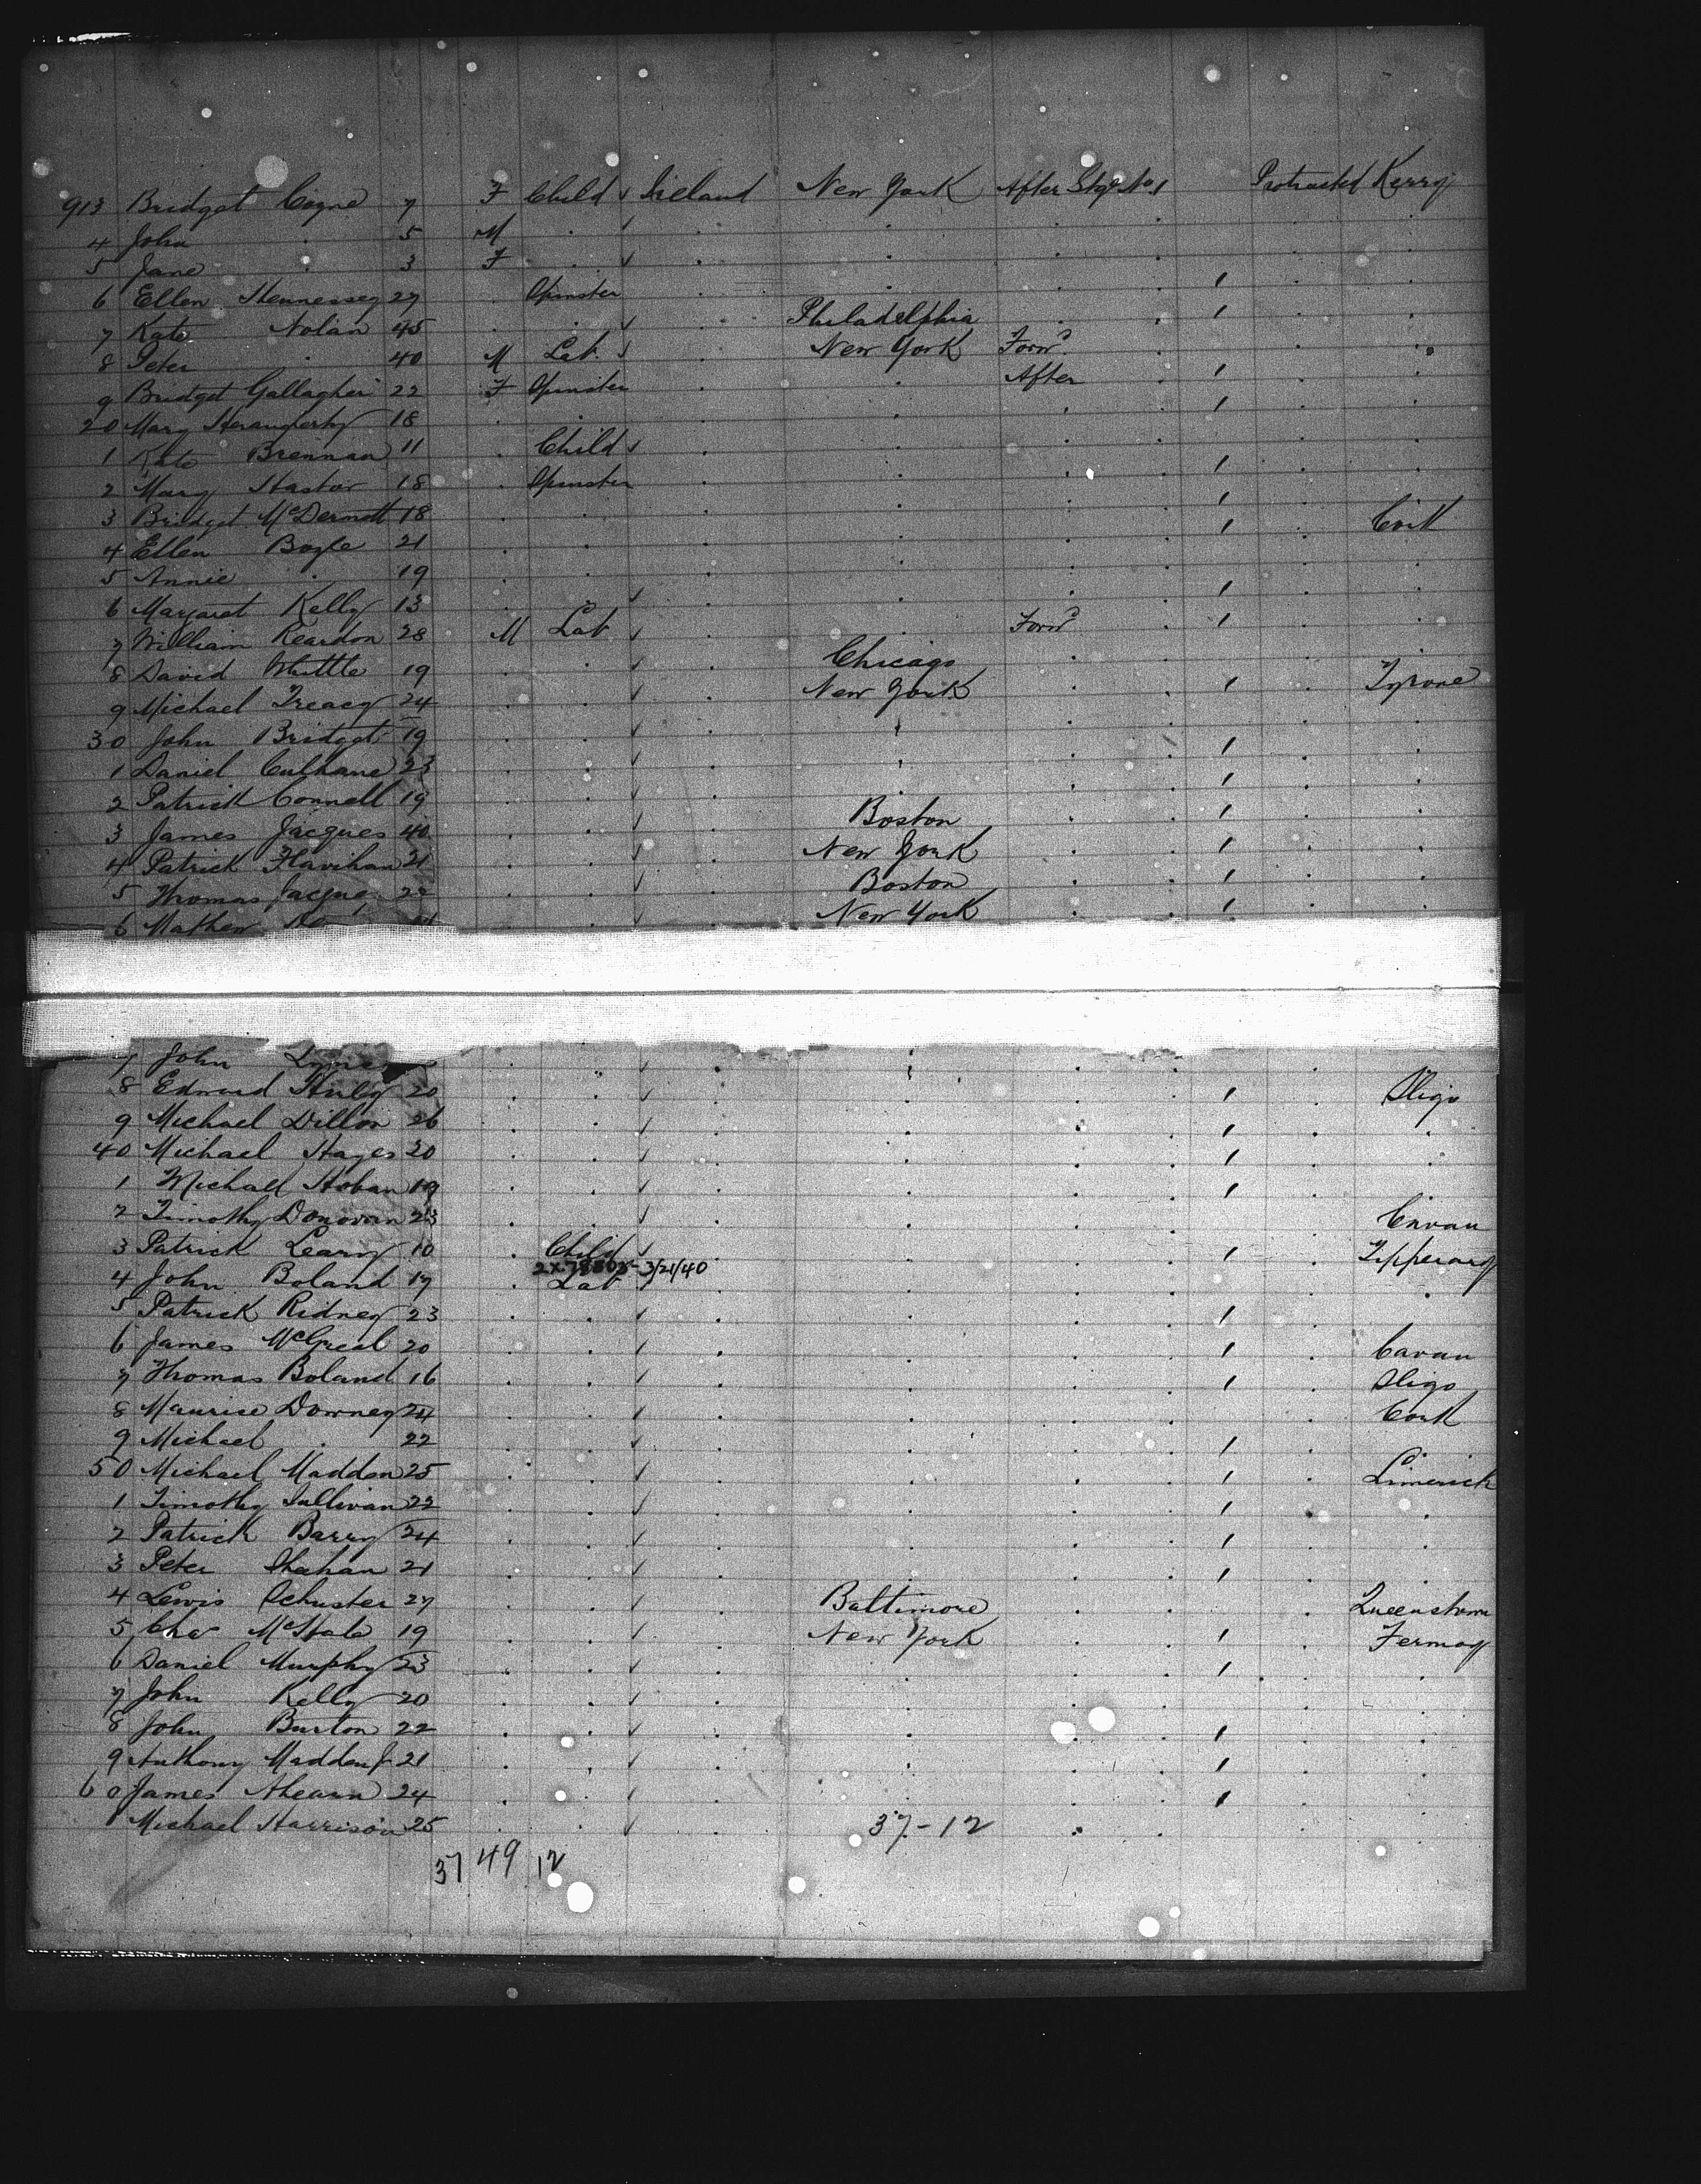 913 Bridget Coyne 7 F Child ✓ Ireland New York After Stge No 1 Protracted Kerry
4 John . 5 M . ✓
5 Jane . 3 F . ✓
6 Ellen Hennessey 27 . Spinster
7 Kate Nolan 45 . . ✓ . Philadelphia
8 Peter . 40 M Lab. ✓ . New York Forwd
9 Bridget Gallagher 22 F Spinster . After
20 Mary 18
1 Kate Brennan 11 . Child ✓
2 Mary Hastor 18 . Spinster
3 Bridget McDermott 18
4 Ellen Boyle 21 Cork
5 Annie . 19
6 Margaret Kelly 13 ✓
7 William Reardon 28 M Lab ✓ Forwd
8 David Whittle 19 ✓ Chicago
9 Michael Treacy 24 ✓ New York Tyrone
30 John Bridget 19 ✓
1 Daniel Culhane 23 ✓
2 Patrick Connell 19 ✓
3 James Jacques 40 ✓ Boston
4 Patrick Flavihan 21 ✓ New York
5 Thomas Jacques 22 ✓ Boston
6 Mathew ✓ New York
7 John ✓
8 Edward 20 ✓ Sligo
9 Michael Dillon 26 ✓
40 Michael Hayes 20 ✓
1 Michael Hoban 19 ✓
2 Timothy Donovan 23 ✓ Cavan
3 Patrick Leary 10 . Child ✓ Tipperary
2X-78803-3/21/40
4 John Boland 17 . Lab ✓
5 Patrick Ridney 23
6 James McGreal 20 Cavan
7 Thomas Boland 16 ✓ Sligo
8 Maurice Downey 24 ✓ Cork
9 Michael . 22 ✓
50 Michael Madden 25 ✓ Limerick
1 Timothy Sullivan 22 ✓
2 Patrick Barry 24 ✓
3 Peter Shehan 21 ✓
4 Lewis Schuster 27 ✓ Baltimore Queenstown
5 Chas McHale 19 ✓ New York Fermoy
6 Daniel Murphy 23 ✓
7 John Kelly 20 ✓
8 John Burton 22 ✓
9 Anthony Madden 21 ✓
60 James Ahearn 24 ✓
1 Michael Harrison 25 ✓ 37-12
37 49 12